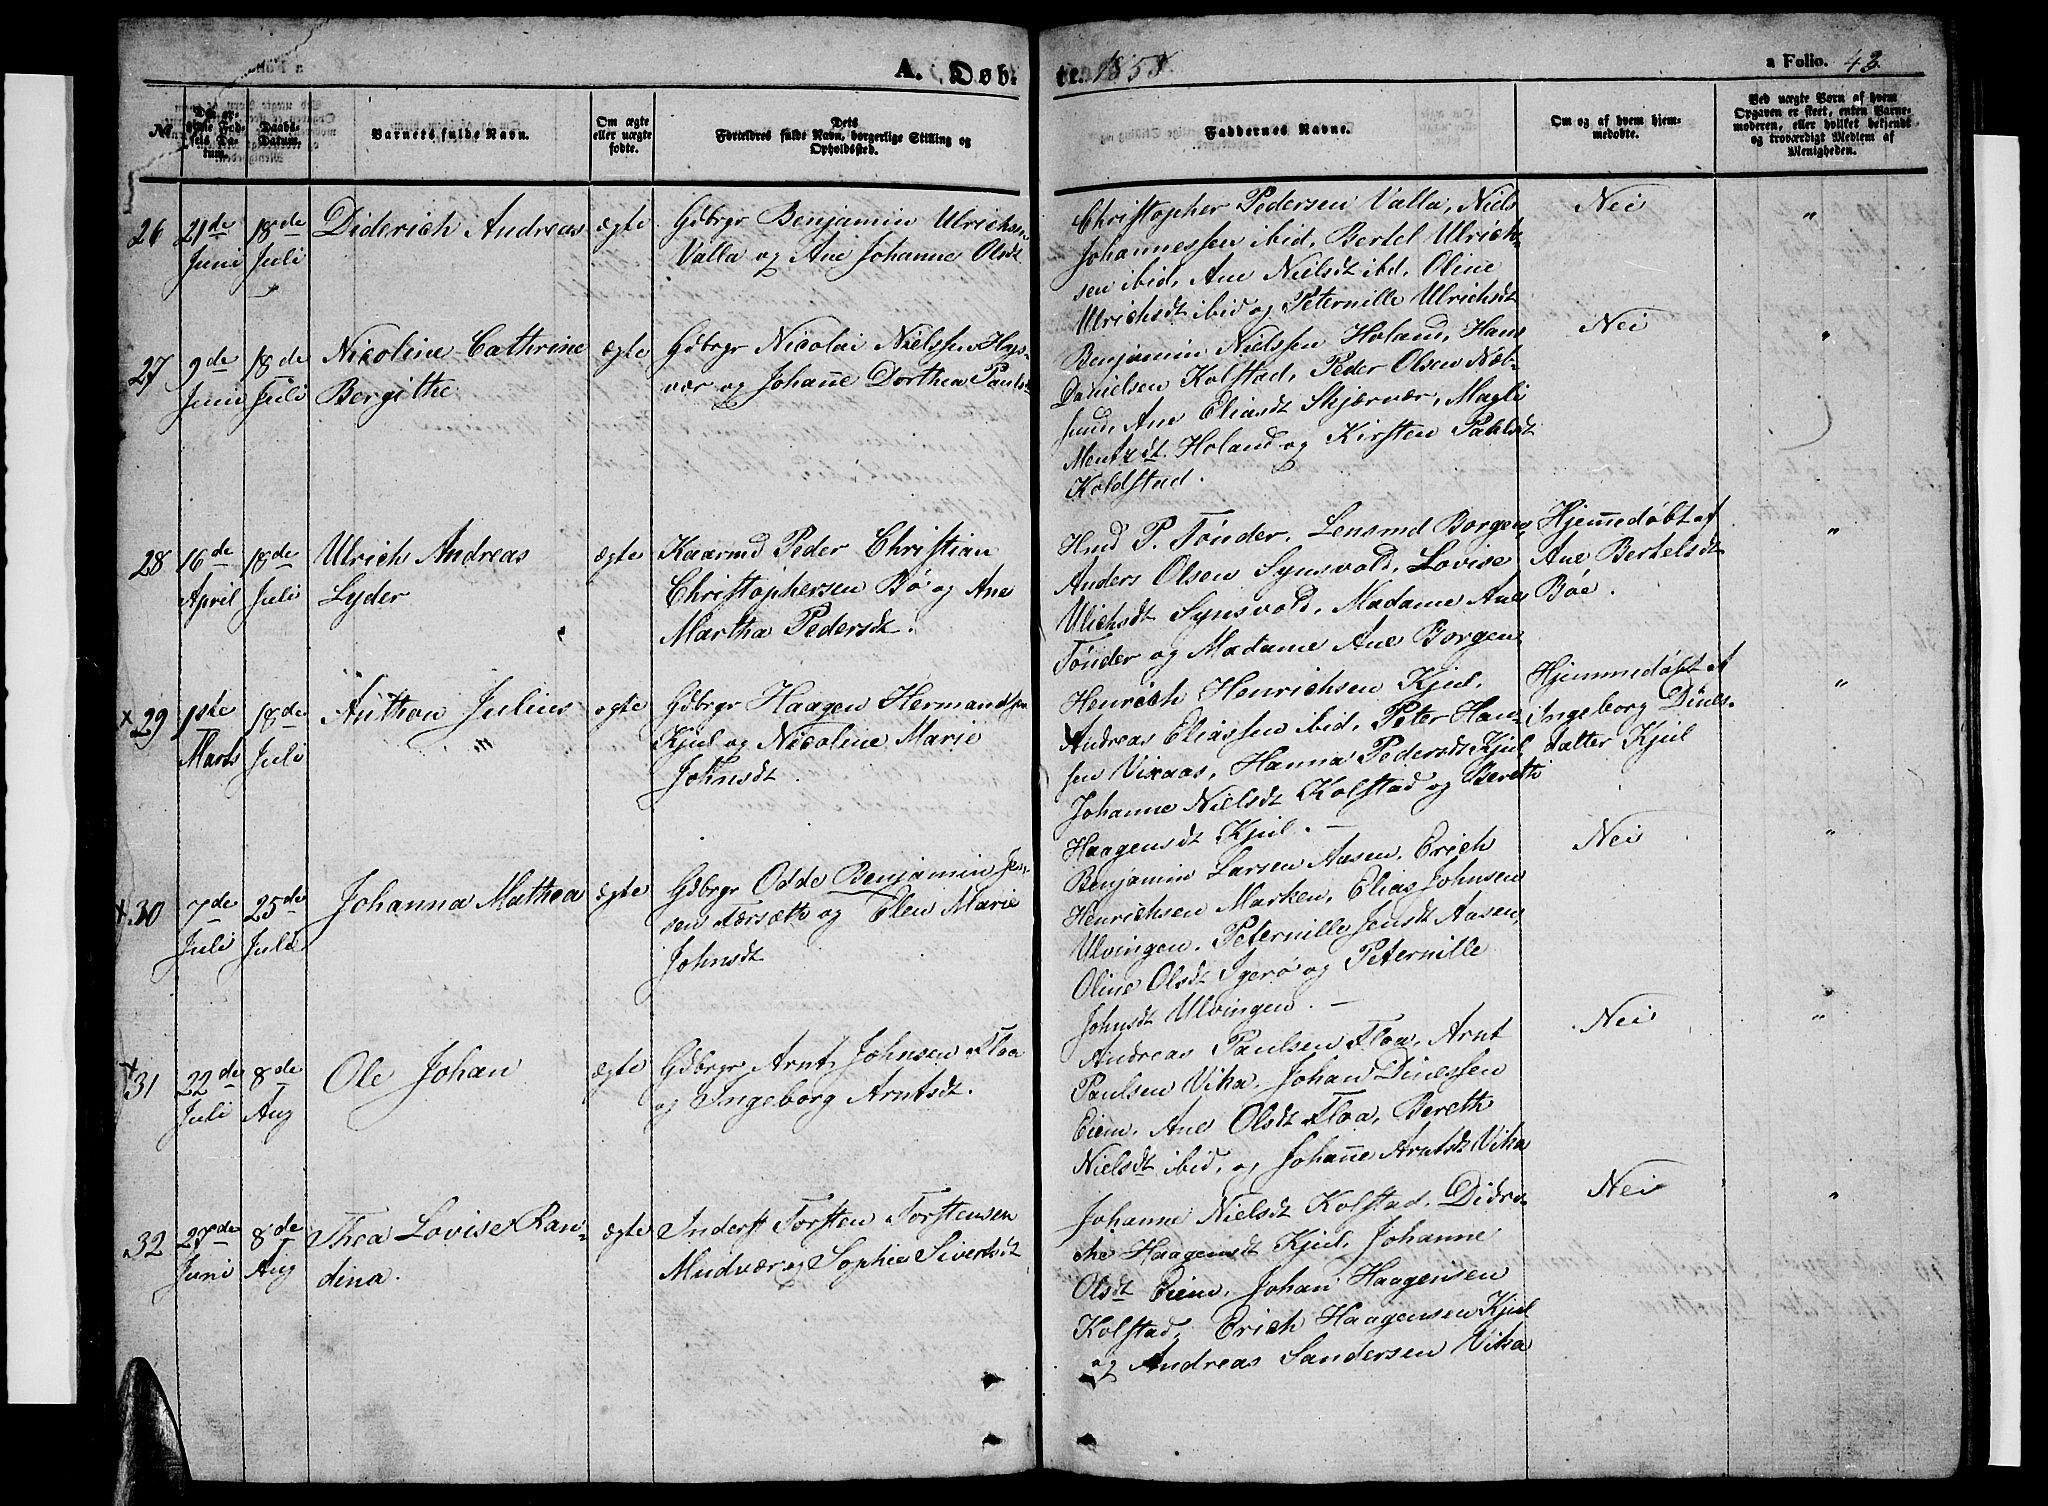 A. Døb- te. 1858 a Folio. 43
No.
Barnets fulde Navn.
Daabs-Datum.
Om ægte eller uægte fødte.
Dets Forældres fulde Navn, borgerlige Stilling og Opholdssted.
Faddernes Navne.
Om og af hvem hjem-
medøbte.
Ved uægte Børn af hvem
Opgaven er skeet, enten Barne-
moderen, eller hvilket bekjendt
og troværdigt Medlem af
Menigheden.
26 21de Juni 18de Juli Diderich Andreas ægte Gdbrgr Benjamin Ulrichsen
Valla og Ane Johanne Olsdt
Christopher Pedersen Valla, Niels
Johannessen ibid, Bertel Ulrich-
sen ibid, Ane Nielsdt ibd, Oline
Ulrichsdt ibid og Peternille Ulrichsdt
Nei "
27 9de Juni 18de Juli Nicoline Cathrine
Bergithe
ægte Gdbrgr Nicolai Nielssen Hys-
vær og Johanne Dorthea Paulsdt
Benjamin Nielssen Holand, Hans
Danielsen Kolstad, Peder Olsen Næs-
sund, Ane Eliasdt Skjærvær, Magli
Mentzdt Holand og Kirsten Pahlsdt
Koldstad.
Nei "
28 16de April 18de Juli Ulrich Andreas
Lyder
ægte Kaarmd Peder Christian
Christophersen Bø og Ane
Martha Pedersdt.
Hmd P. Tønder, Lensmd Borgen,
Anders Olsen Synsvold, Lovise
Ulichsdt Synsvold, Madame Anes
Tønder og Madame Ane Borgen
Hjemmedøbt af
Ane Bertelsdt
Bøe.
"
x 29 1ste Marts 18de Juli Anthon Julius ægte Gdbrgr Haagen Hermandsen
Kjul og Nicoline Marie
Johnsdt
Henrich Henrichsen Kjul,
Andreas Eliassen ibid, Peter Han-
sen Vixaas, Hanna Pedersdt Kjul
Johanne Nielsdt Kolstad og Bereth
Haagensdt Kjul. —
Hjemmedøbt af
Ingeborg Dines-
datter Kjul
"
x 30 7de Juli 25de Juli Johanna Mathea ægte Gdbrgr Odde Benjamin Jen-
sen Færsæth og Elen Marie
Johnsdt
Benjamin Larsen Aasen, Erich
Henrichsen Marken, Elias Johnsen
Ulvingen, Peternille Jensdt Aasen,
Oline Olsdt Igerø og Peternille
Johnsdt Ulvingen. —
Nei "
x 31 22de Juli 8de Aug Ole Johan ægte Gdbrgr Arnt Johnsen Floa
og Ingeborg Arntsdt.
Andreas Paulsen Floa, Arnt
Paulsen Vika, Johan Dinessen
Eiem, Ane Olsdt Floa, Bereth
Nielsdt ibid, og Johanne Arntsdt Vika
Nei "
32 27de Juni 8de Aug Thea Lovise Ran-
dina.
ægte Inderst Torsten Torstensen
Mudvær og Sophie Sivertsdt
Johanne Nielsdt Kolstad, Didri-
che Haagensdt Kjul, Johanne
Olsdt Eiem, Johan Haagensen
Kolstad, Erich Haagensen Kjul
og Andreas Sandersen Vika
Nei "